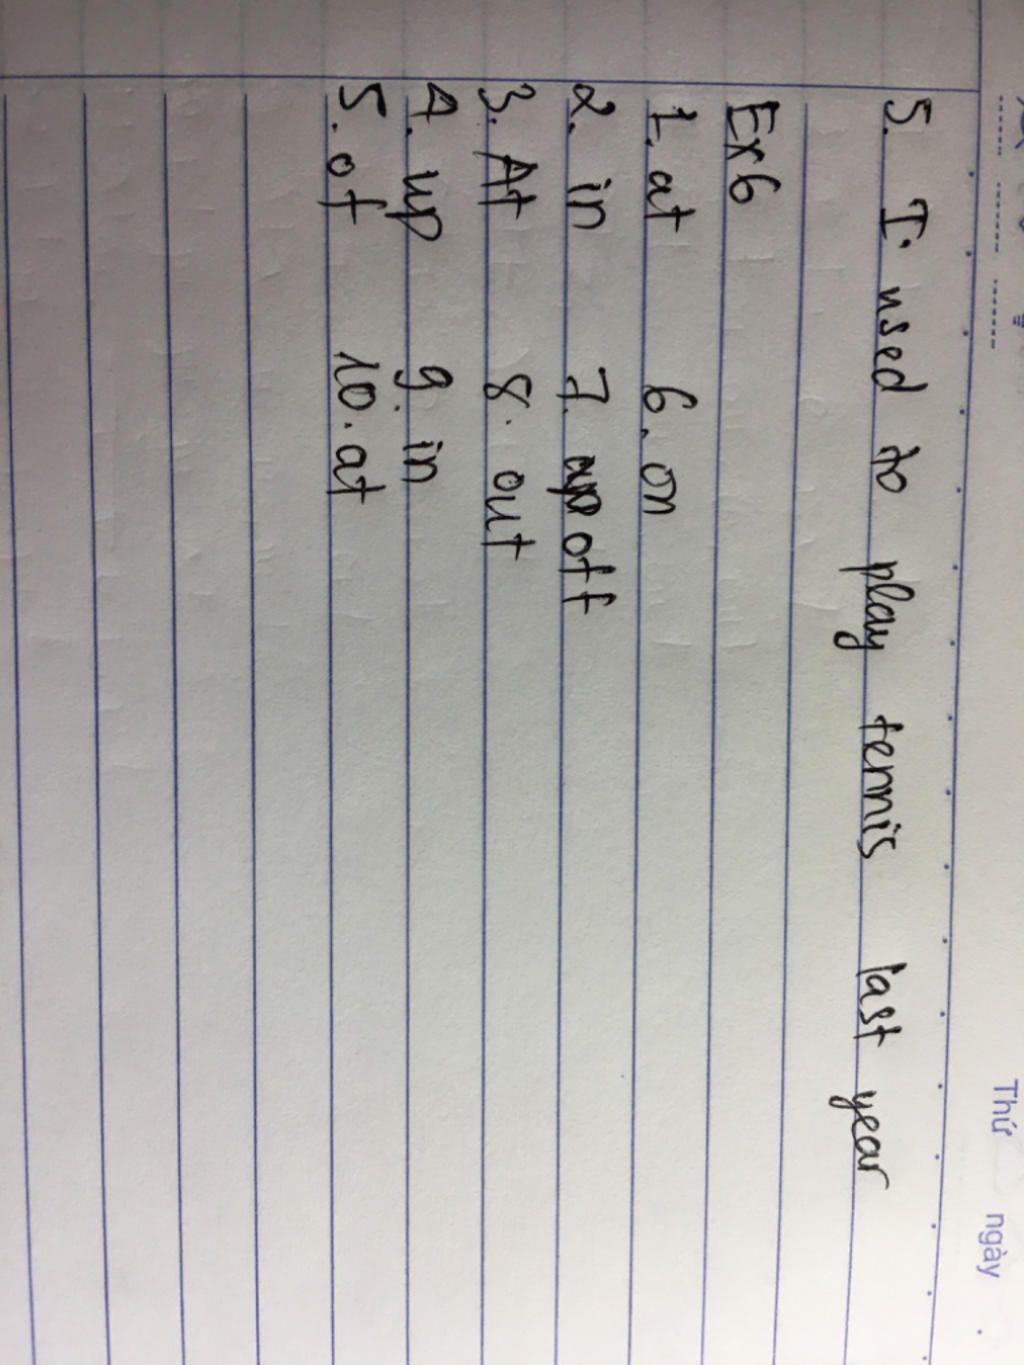 Thứ ngày .
5. I used to play tennis last year
Ex6
1. at 6. on
2. in 7. off
3. At 8. out
4. up 9. in
5. of 10. at